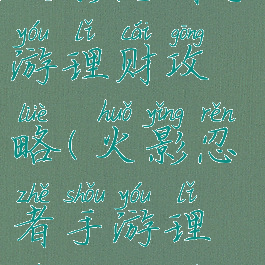 yóu lǐ cái gōng
游理财攻
lüè huǒ yǐng rěn
略(火影忍
zhě shǒu yóu lǐ
者手游理